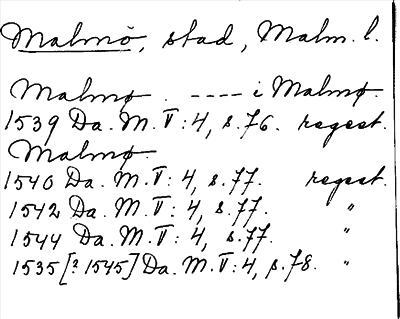 Malmö, stad, Malm. l.
Malmø. ---- i Malmø.
1539 Da. M. V: 4, s. 76. regest.
Malmø.
1540 Da. M. V: 4, s. 77. regest.
1542 Da. M. V: 4, s. 77. "
1544 Da. M. V: 4, s. 77. "
1535 [? 1545] Da. M. V: 4, s. 78. "